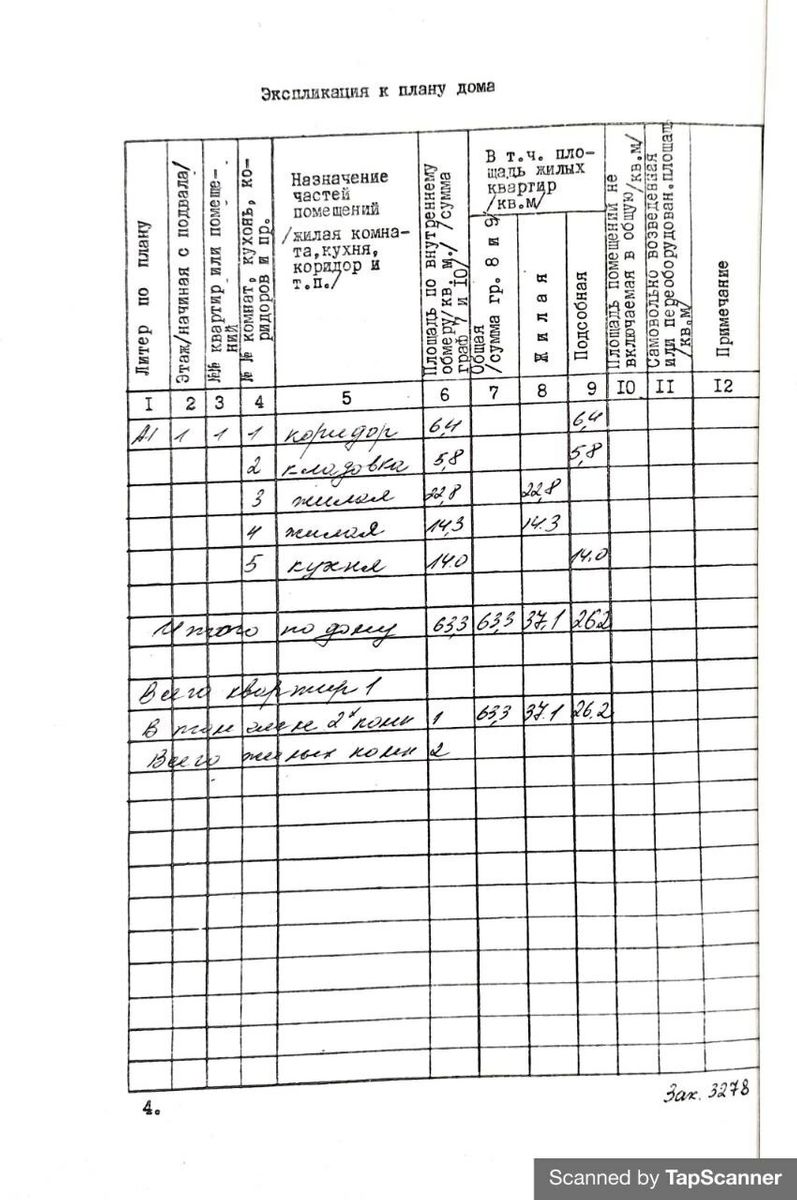 Экспликация к плану дома
Литер по плану
Этаж/начиная с подвала/
№№ квартир или помеще-
ний
№ № комнат, кухонь, ко-
ридоров и пр.
Назначение
частей
помещений
/жилая комна-
та,кухня,
коридор и
т.п./
Площадь по внутреннему
обмеру/кв. м./ /сумма
граф 7 и 10/
В т.ч. пло-
щадь жилых
квартир
/кв.м/
Общая
/сумма гр. 8 и 9/
Жилая
Подсобная
Площадь помещений не
включаемая в общую/кв.м/
Самовольно возведенная
или переоборудован.площадь
/кв.м/
Примечание
I 2 3 4 5 6 7 8 9 IO II I2
А1 1 1 1 коридор 6,4 6,4
2 кладовка 5,8 5,8
3 жилая 22,8 22,8
4 жилая 14,3 14.3
5 кухня 14.0 14.0
Итого по дому 63,3 63,3 37,1 26.2
Всего квартир 1
В том числе 2х комн 1 63,3 37.1 26.2
Всего жилых комн 2
4.
Зак. 3278
Scanned by TapScanner